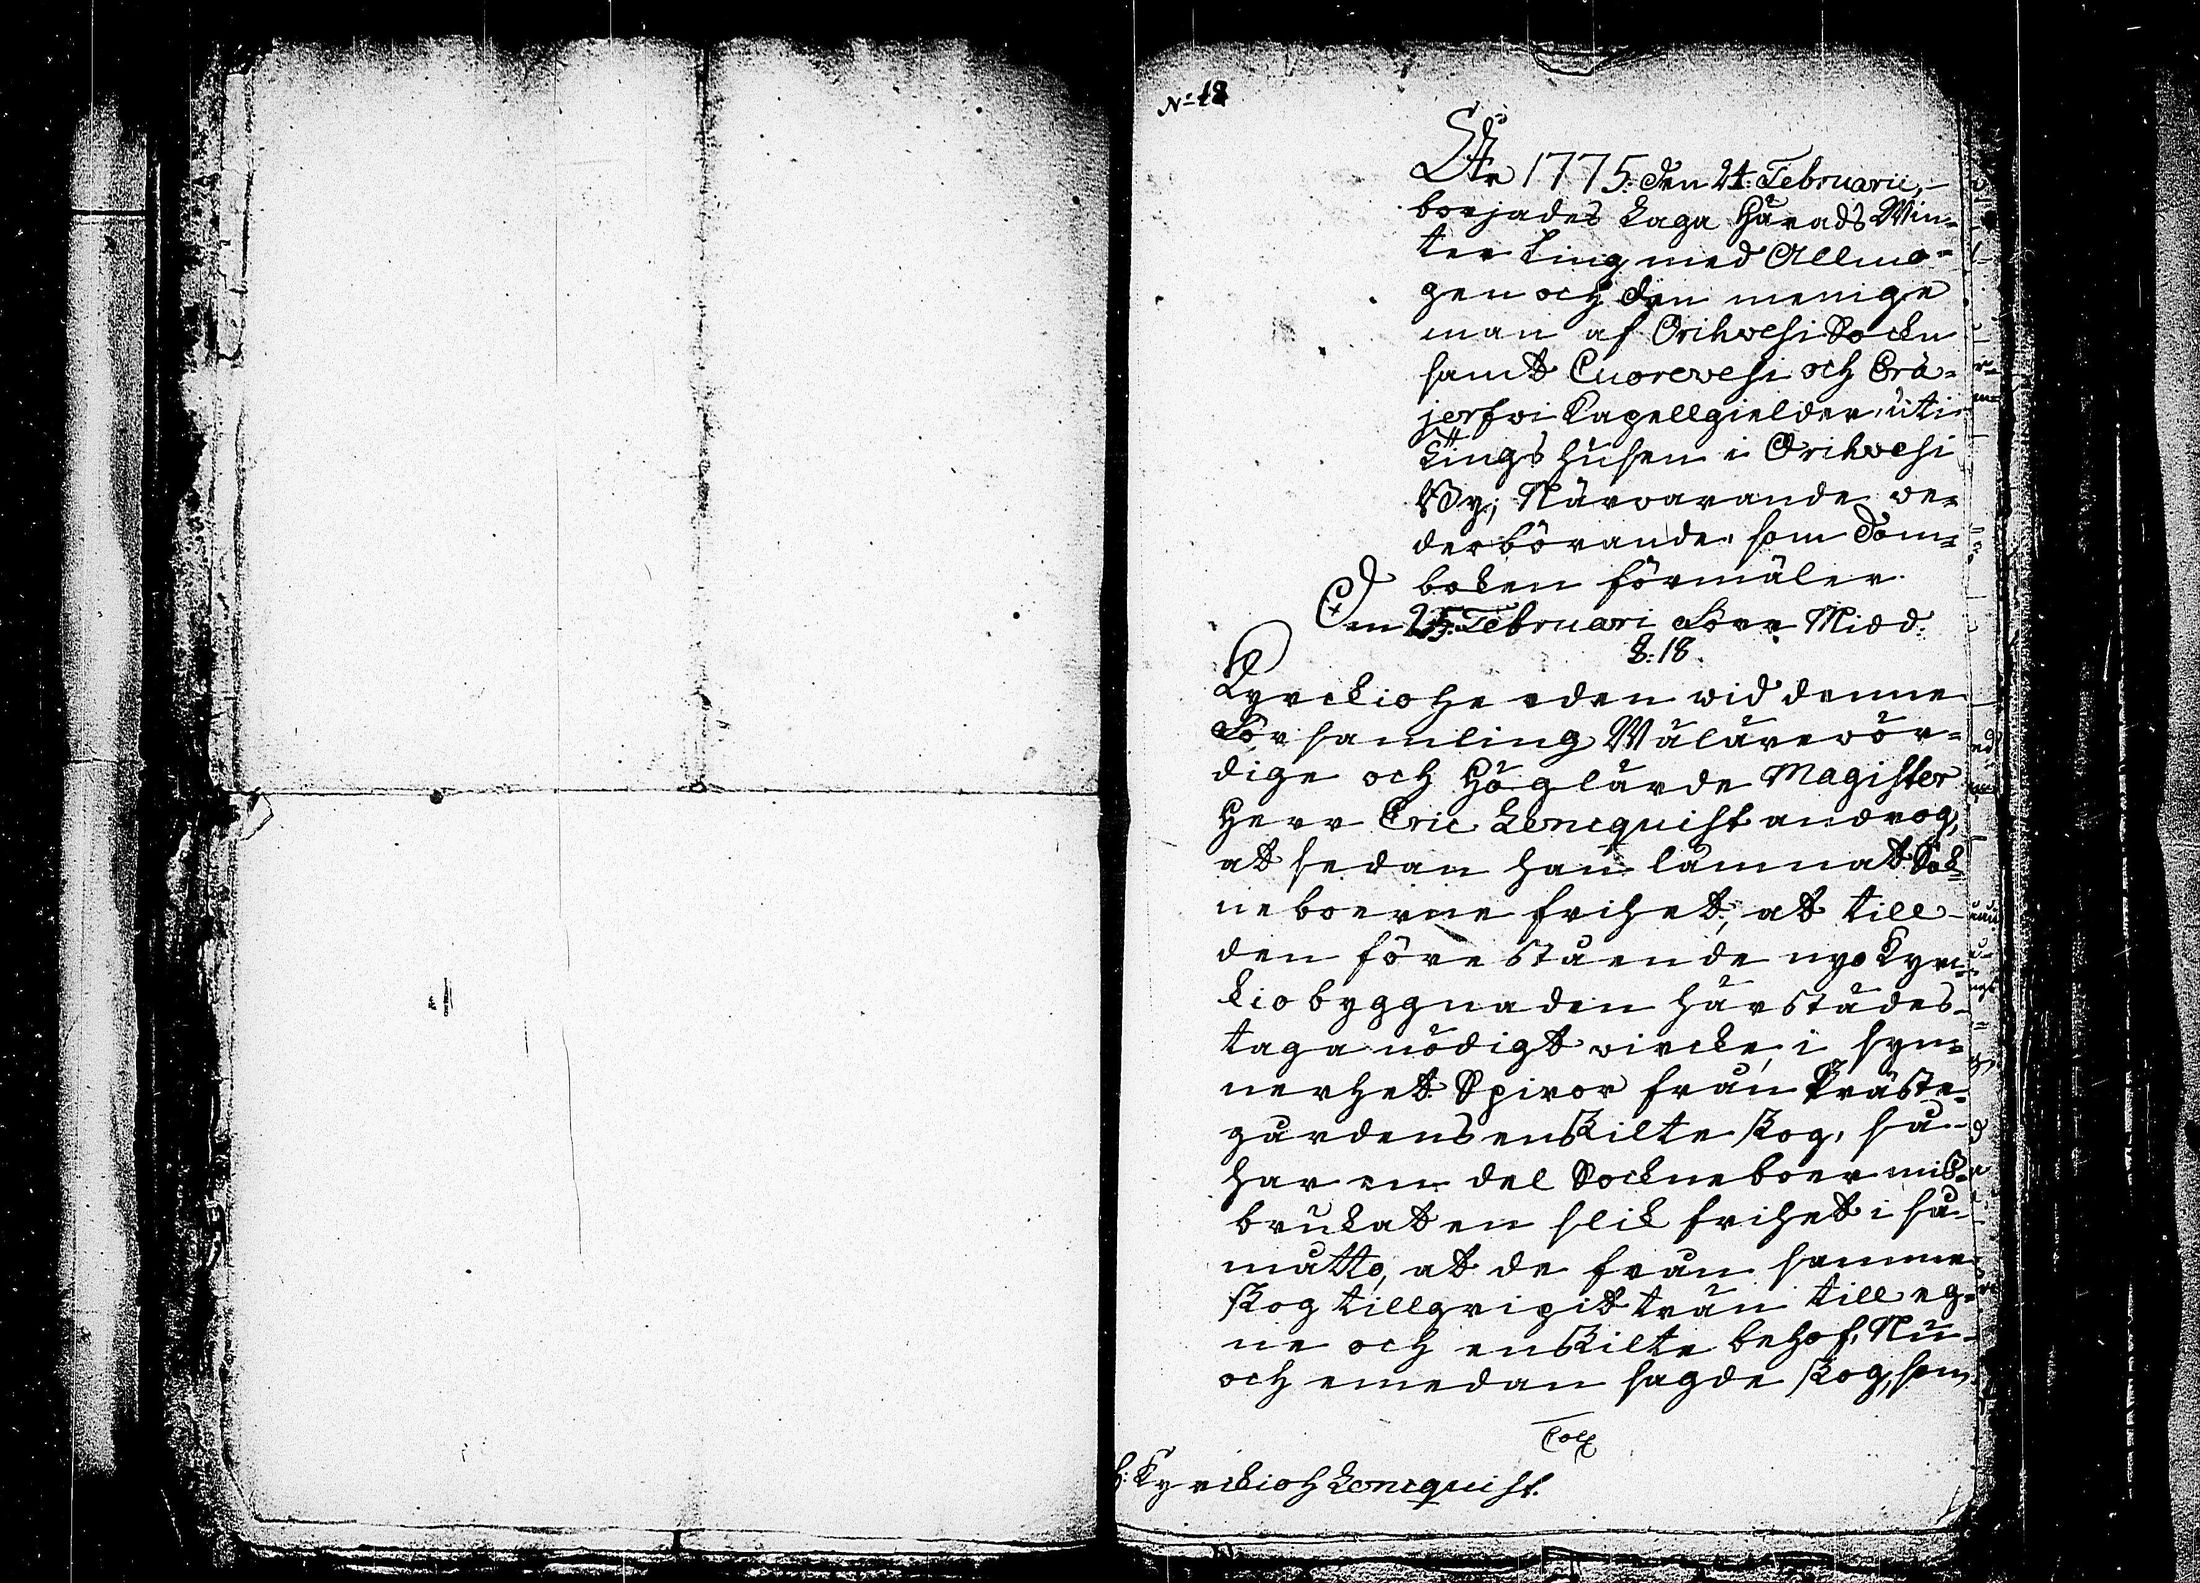 N:o 48
År 1775. den 24. Februarii,
börjades Laga Härads Win-
ter Ting med Allmo-
gen och den menige
man af Orihvesi Sockn
samt Cuorevesi och Erä-
jerfwi Capellgielder, uti
Tings husen i Orihvesi
By; Närvarande we-
derbörande, som Dom-
boken förmäler.
Den 25. Februari Förr Midd:
§: 18.
Kyrckioherden wid denne
Församling Wälärewör-
dige och Höglärde Magister
Herr Eric Lencquist androg,
at sedan han lämnat Sok-
neboerne frihet, at till
den förestående nya Kyrc-
kiobyggnaden härstädes
taga nödigt wircke, i syn-
nerhet Spiror från Präste-
gårdens enskilte skog, så
har en del Sockneboer mis-
brukat en slik frihet i så
måtto, at de från samme
skog tillgripit trän till eg-
ne och enskilte behof; Nu
och emedan sagde skog, som
h: Kyrckioh Lencquist.